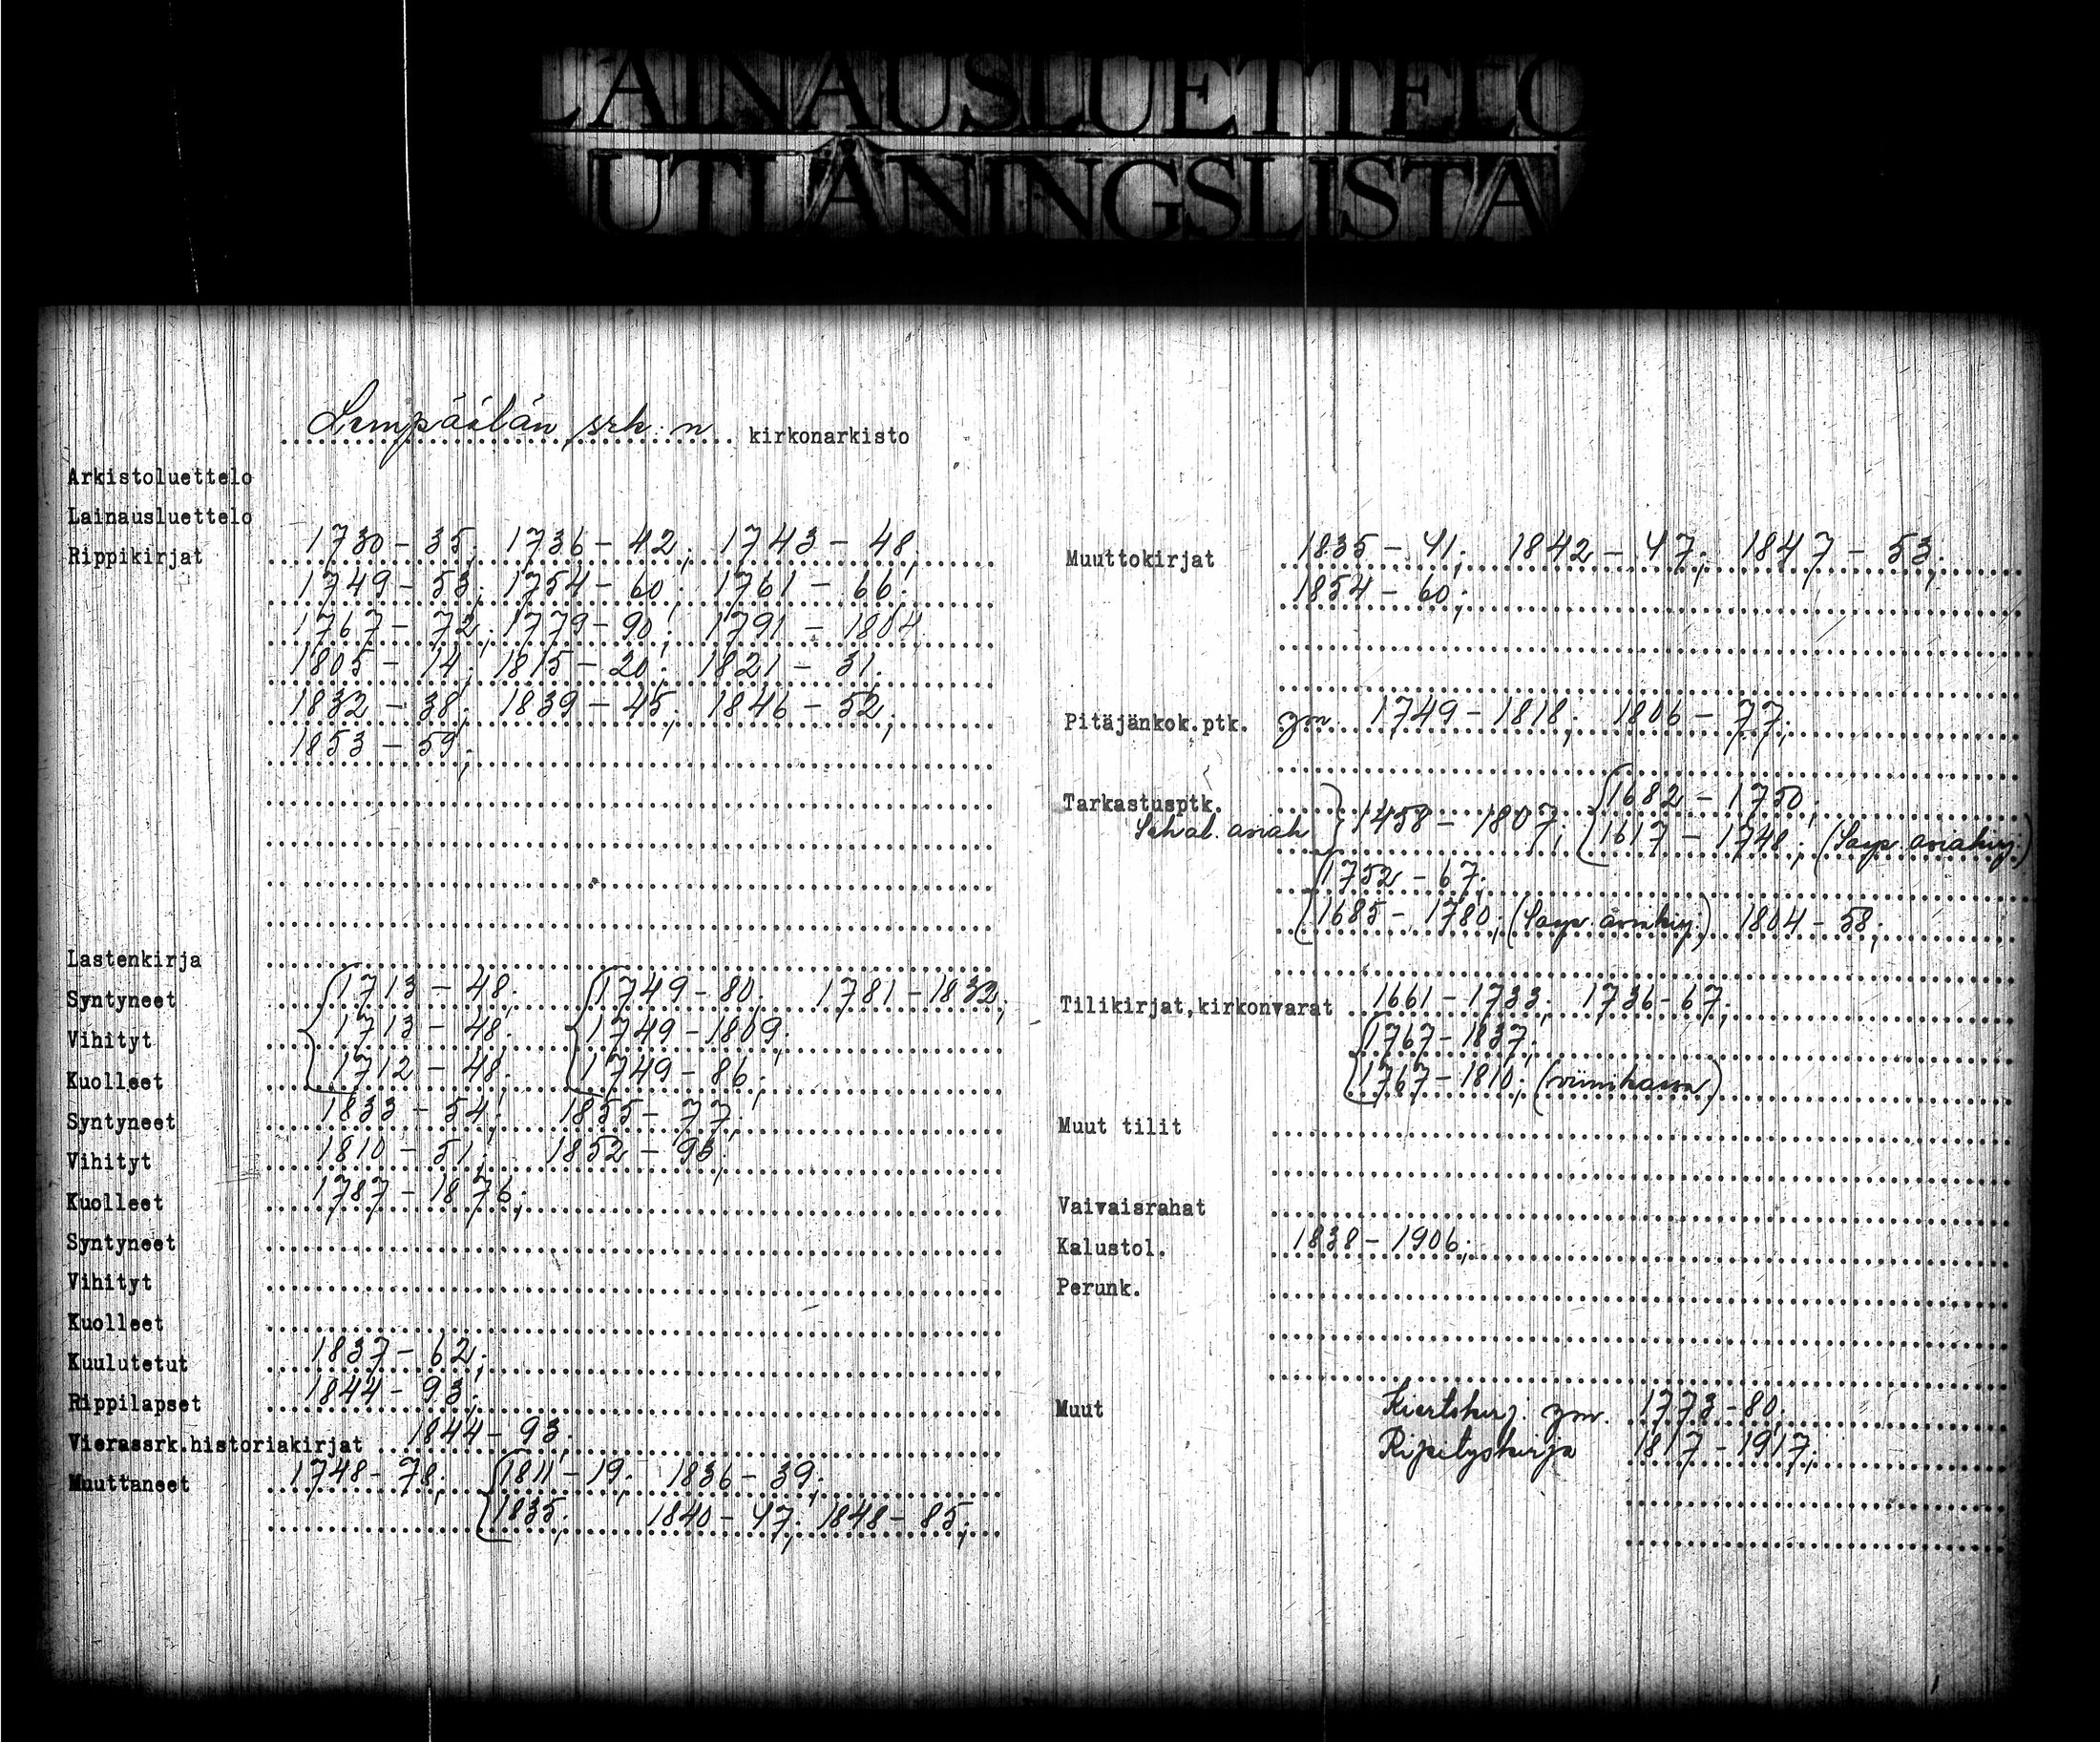 LAINAUSLUETTELO
UTLÅNINGSLISTA
Lempäälän srk:n kirkonarkisto
Arkistoluettelo
Lainausluettelo
Rippikirjat 1730-35; 1736-42; 1743-48;
1749-53; 1754-60; 1761-66;
1767-72; 1779-90; 1791-1804
1805-14; 1815-20; 1821-31;
1832-38; 1839-45; 1846-52;
1853-59;
Lastenkirja
Syntyneet 1713-48; 1749-80; 1781-1832;
Vihityt 1713-48; 1749-1809;
Kuolleet 1712-48; 1749-86;
Syntyneet 1833-54; 1855-77;
Vihityt 1810-51; 1852-93;
Kuolleet 1787-1876;
Syntyneet
Vihityt
Kuolleet
Kuulutetut 1837-62;
Rippilapset 1844-93;
Vierassrk.historiakirjat 1844-93;
Muuttaneet 1748-78; 1811-19; 1836-39;
1835; 1840-47; 1848-85;
Muuttokirjat 1835-41; 1842-47; 1847-53;
1854-60;
Pitäjänkok.ptk. ym. 1749-1818; 1806-77;
Tarkastusptk. 1682-1750;
Sekal. asiak 1458-1807; 1617-1748; (Saap. asiakirj.)
1752-67;
1685-1780; (Saap. asiakirj.) 1804-58;
Tilikirjat,kirkonvarat 1661-1733; 1736-67;
1767-1837;
1767-1810; (viinikassa)
Muut tilit
Vaivaisrahat
Kalustol. 1838-1906;
Perunk.
Muut Kiertokirj. ym. 1773-80;
Ripityskirja 1817-1917;